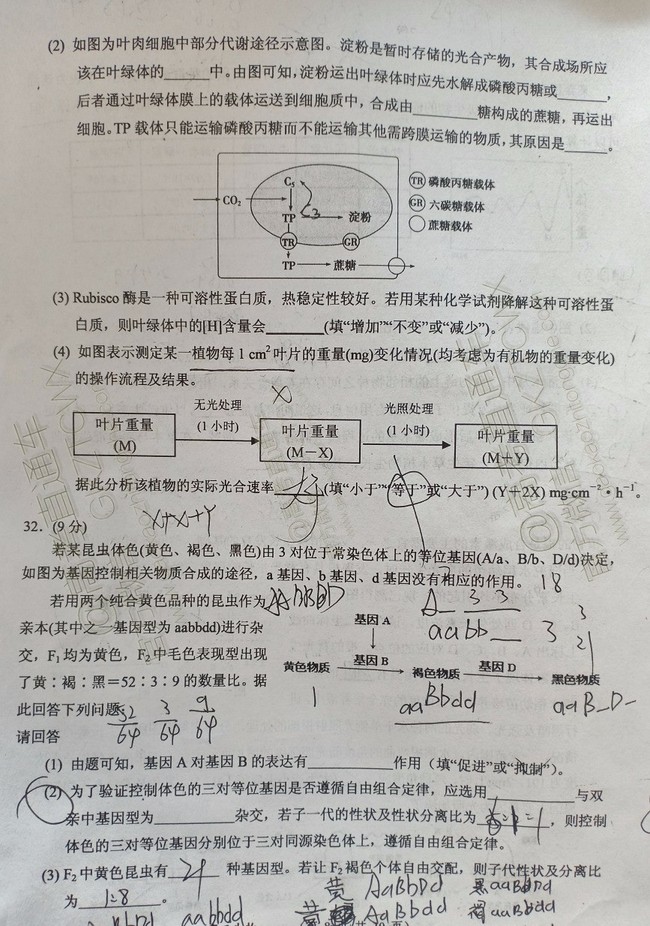 (2) 如图为叶肉细胞中部分代谢途径示意图。淀粉是暂时存储的光合产物，其合成场所应
该在叶绿体的______中。由图可知，淀粉运出叶绿体时应先水解成磷酸丙糖或______，
后者通过叶绿体膜上的载体运送到细胞质中，合成由________糖构成的蔗糖，再运出
细胞。TP 载体只能运输磷酸丙糖而不能运输其他需跨膜运输的物质，其原因是______。
C₅
CO₂
C3
TP
淀粉
TR
GR
TP
蔗糖
TR 磷酸丙糖载体
GR 六碳糖载体
蔗糖载体
(3) Rubisco 酶是一种可溶性蛋白质，热稳定性较好。若用某种化学试剂降解这种可溶性蛋
白质，则叶绿体中的[H]含量会_______(填“增加”“不变”或“减少”)。
(4) 如图表示测定某一植物每 1 cm²叶片的重量(mg)变化情况(均考虑为有机物的重量变化)
的操作流程及结果。
X
叶片重量
(M)
无光处理
(1 小时)
叶片重量
(M－X)
光照处理
(1 小时)
叶片重量
(M+Y)
据此分析该植物的实际光合速率______(填“小于”“等于”或“大于”) (Y+2X) mg·cm⁻²·h⁻¹。
X+X+Y
32. (9 分)
若某昆虫体色(黄色、褐色、黑色)由 3 对位于常染色体上的等位基因(A/a、B/b、D/d)决定，
如图为基因控制相关物质合成的途径，a 基因、b 基因、d 基因没有相应的作用。
18
若用两个纯合黄色品种的昆虫作为
AABBDD
亲本(其中之一基因型为 aabbdd)进行杂
交，F₁均为黄色，F₂中毛色表现型出现
了黄∶褐∶黑=52∶3∶9 的数量比。据
此回答下列问题
52/64 3/64 9/64
请回答
A_ 3 3
aabb_ 3
3
21
基因 A
黄色物质
基因 B
褐色物质
基因 D
黑色物质
aaBbdd
aaB_D-
(1) 由题可知，基因 A 对基因 B 的表达有__________作用（填“促进”或“抑制”）。
(2) 为了验证控制体色的三对等位基因是否遵循自由组合定律，应选用__________与双
亲中基因型为__________杂交，若子一代的性状及性状分离比为________，则控制
体色的三对等位基因分别位于三对同源染色体上，遵循自由组合定律。
(3) F₂中黄色昆虫有 21 种基因型。若让 F₂褐色个体自由交配，则子代性状及分离比
为 1:8 。
黄 AaBbDd 黑 aaBbDd
aabbdd AaBbdd 褐 aaBbdd